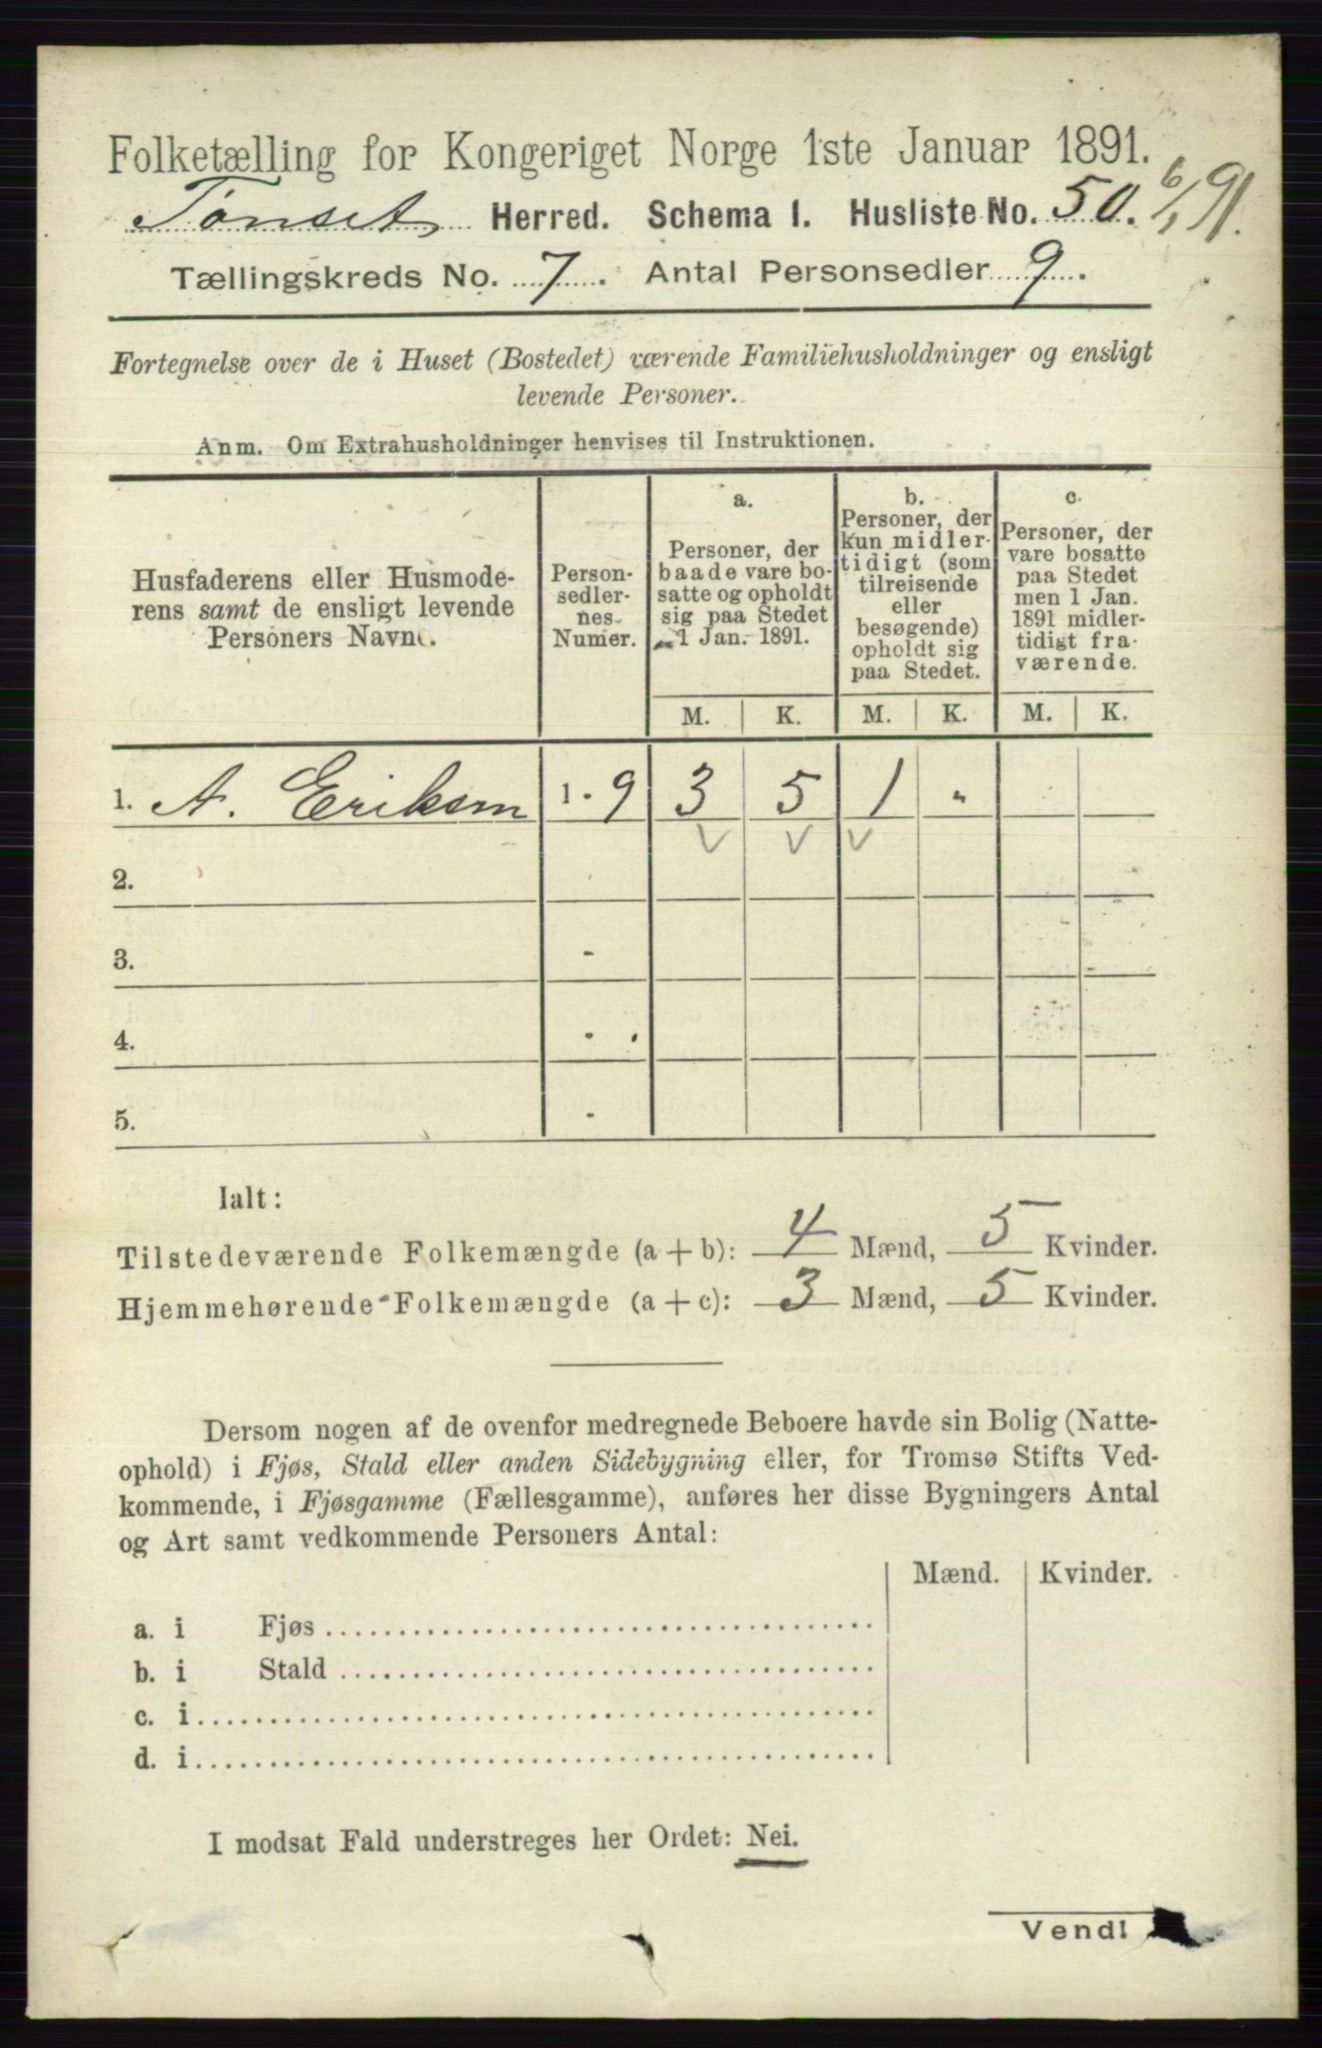 Folketælling for Kongeriget Norge 1ste Januar 1891.
Tønset Herred. Schema I. Husliste No. 50. 6/1 91.
Tællingskreds No. 7. Antal Personsedler 9.
Fortegnelse over de i Huset (Bostedet) værende Familiehusholdninger og ensligt
levende Personer.
Anm. Om Extrahusholdninger henvises til Instruktionen.
Husfaderens eller Husmode-
rens samt de ensligt levende
Personers Navne.
Person-
sedler-
nes
Numer.
a.
Personer, der
baade vare bo-
satte og opholdt
sig paa Stedet
1 Jan. 1891.
b.
Personer, der
kun midler-
tidigt (som
tilreisende
eller
besøgende)
opholdt sig
paa Stedet.
c.
Personer, der
vare bosatte
paa Stedet
men 1 Jan.
1891 midler-
tidigt fra-
værende.
M. K. M. K. M. K.
1. A. Eriksen 1 - 9 3 5 1 -
2.
3. -
4. -
5. -
Ialt:
Tilstedeværende Folkemængde (a + b): 4 Mænd, 5 Kvinder.
Hjemmehørende Folkemængde (a + c): 3 Mænd, 5 Kvinder.
Dersom nogen af de ovenfor medregnede Beboere havde sin Bolig (Natte-
ophold) i Fjøs, Stald eller anden Sidebygning eller, for Tromsø Stifts Ved-
kommende, i Fjøsgamme (Fællesgamme), anføres her disse Bygningers Antal
og Art samt vedkommende Personers Antal:
Mænd. Kvinder.
a. i Fjøs
b. i Stald
c. i
d. i
I modsat Fald understreges her Ordet: Nei.
Vend!